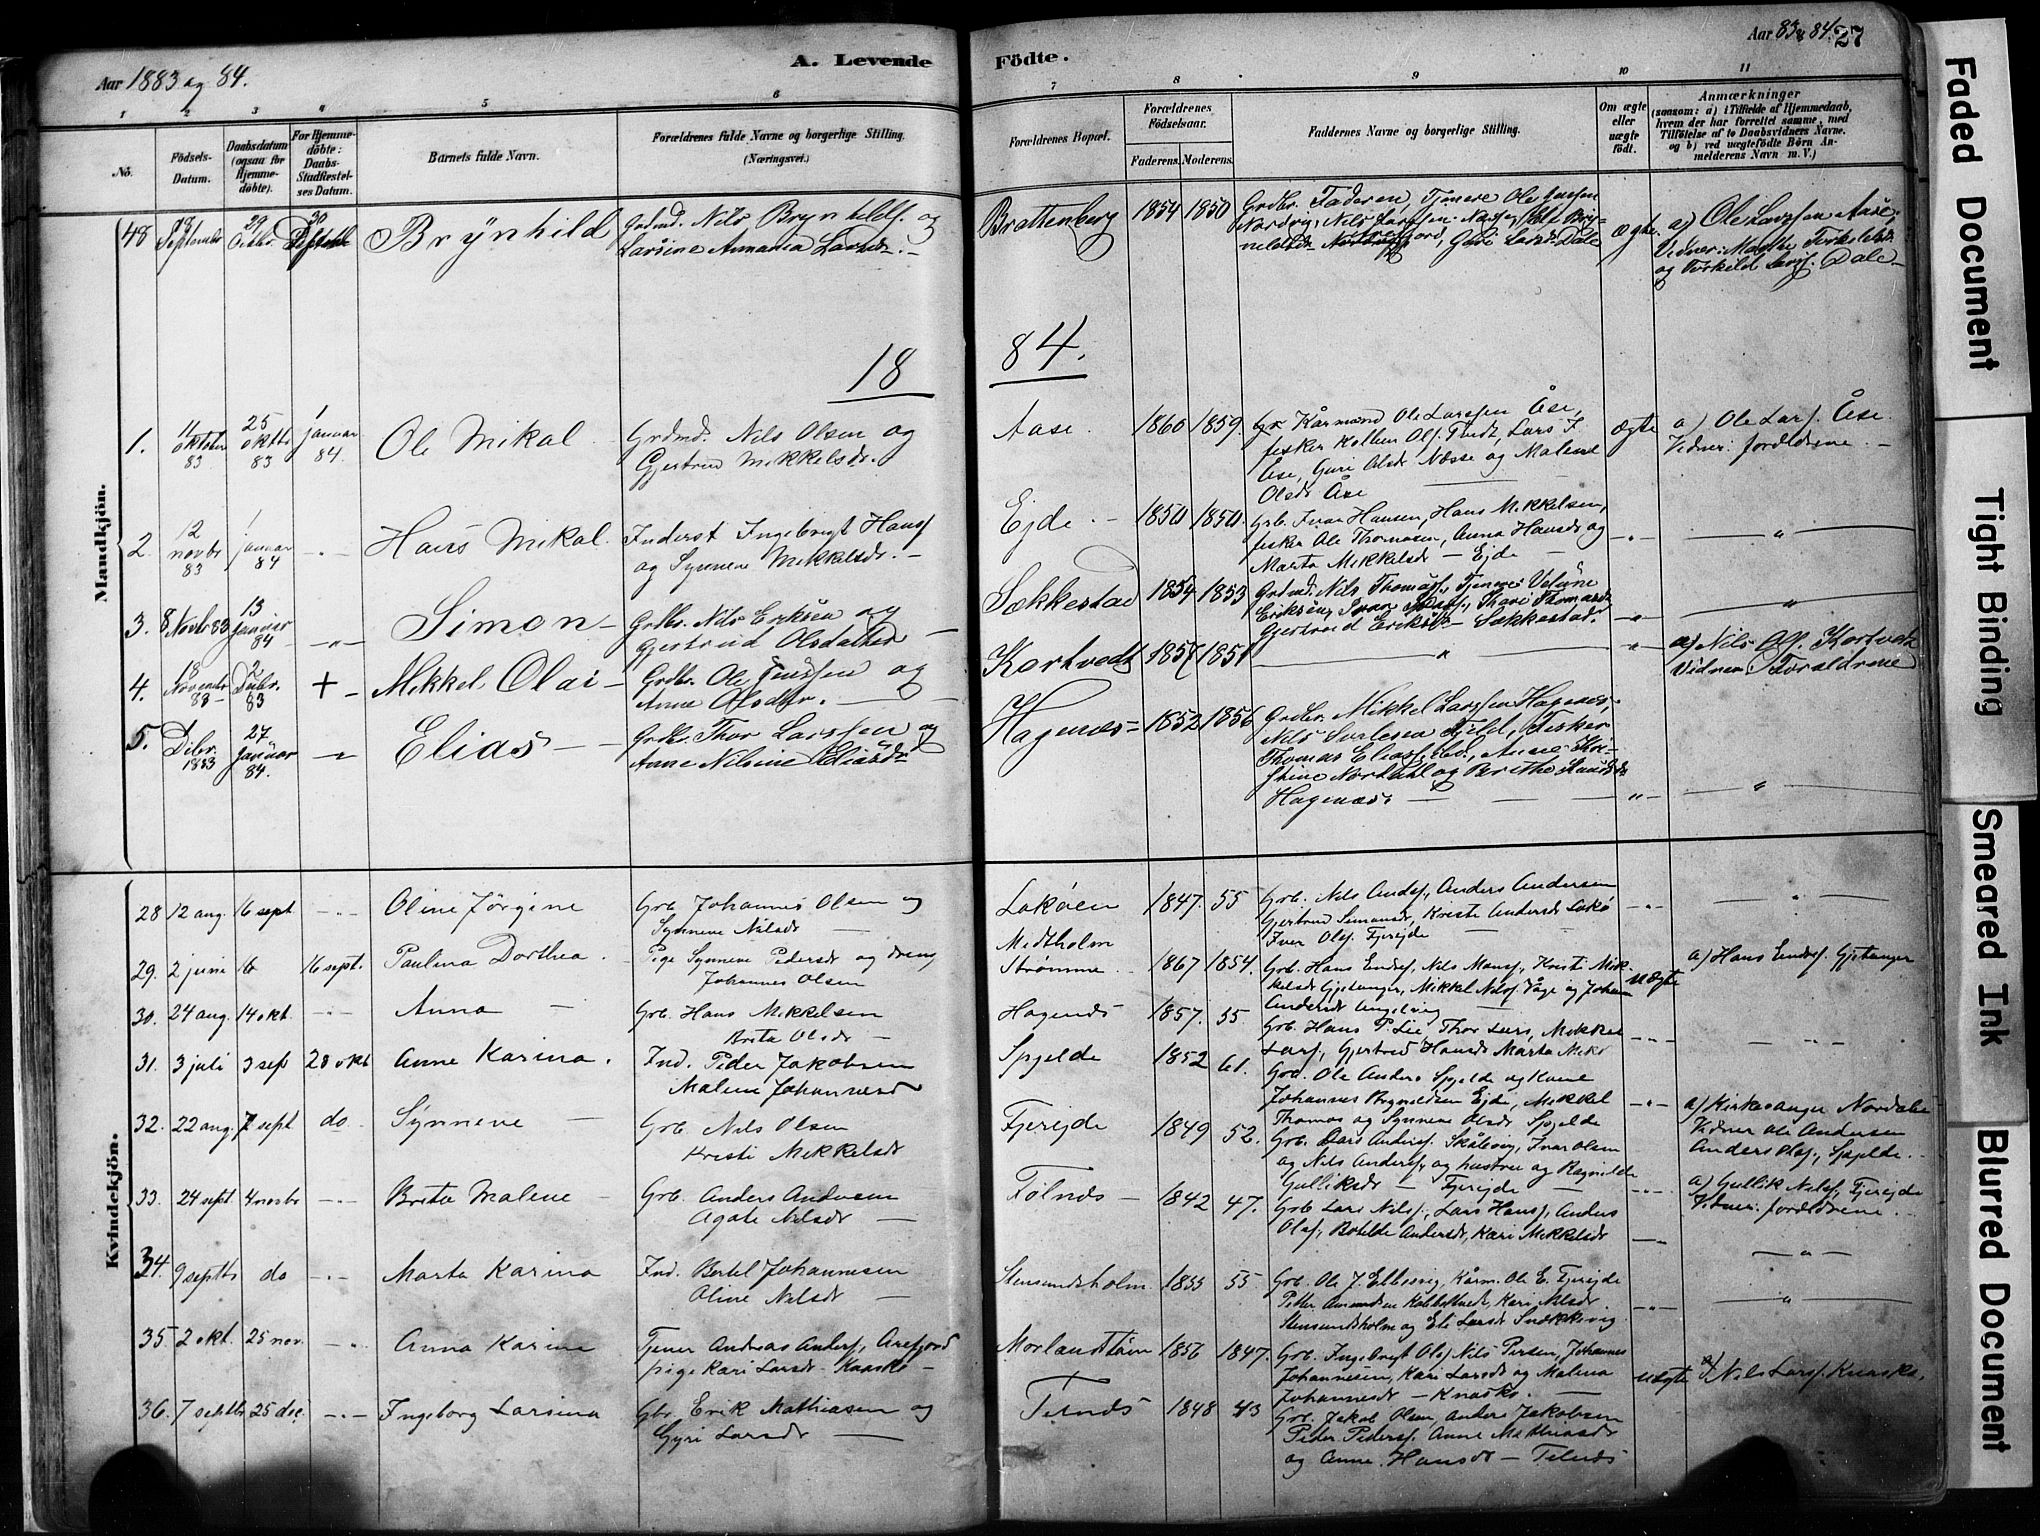 Aar 1883 og 84.
A. Levende
Födte.
Aar 83 & 84. 27
1 2 3 4 5 6 7 8 9 10 11
No.
Födsels-
Datum.
Daabsdatum
(ogsaa for
Hjemme-
döbte).
For Hjemme-
döbte:
Daabs-
Stadfæstel-
ses Datum.
Barnets fulde Navn.
Forældrenes fulde Navne og borgerlige Stilling.
(Næringsvei.)
Forældrenes Bopæl.
Forældrenes
Födselsaar.
Faderens. Moderens.
Faddernes Navne og borgerlige Stilling.
Om ægte
eller
uægte
födt.
Anmærkninger
(saasom: a) i Tilfælde af Hjemmedaab,
hvem der har forrettet samme, med
Tilföielse af to Daabsvidners Navne,
og b) ved uægtefödte Börn An-
melderens Navn m. V.)
Mandkjön.
48 September 29 Octbr. 30 Brynhild Grdmd. Nils Brynhildf. og
Larsine Annania Larsdr.
Brattenberg 1854 1850 Grdbr. Faderen, Tjenere Ole
Nordvig, Nils Larssen
Guri Larsd. Dale
ægte. a) Ole Larssen Aase.
Vidner: Torkelsd.
og Torkild Larsf. Dale
18 84.
1. 11 oktober 83 25 oktbr 83 1 januar 84. Ole Mikal Grdmd. Nils Olsen og
Gjertrud Mikkelsdr.
Aase. 1860 1859. Kårmand Ole Larssen Åse,
fisker Kolben Olsf. Tundt, Lars I.
Åse, Guri Olsd Næsse og Malene
Olsdr Åse
ægte a) Ole Larsf. Åse
Vidner: forældrene.
2. 12 novbr 83 1 januar 84 Hans Mikal. Inderst Ingebrigt Hansf
og Synneve Mikkelsdr.
Ejde. 1850 1850. Grb. Ivar Hansen, Hans Mikkelsen,
fisker Ole Thomasen, Anna Hansdr og
Marta Mikkelsdr - Ejde
3. 8 Novbr 83 13 Januar 84 Simon Grdbr. Nils Eriksen og
Gjertrud Olsdatter
Sækkestad 1854 1853 Grdmd. Nils Thomasf., Tjenere
Thari Thomasd.
Gjertrud Eriksd. - Sækkestad.
4. 18 November 83 2 Decbr. 83 + Mikkel Olai Grdbr. Ole Jenssen og
Anne Olsdtr.
Kortvedt 1857 1851 a) Nils Olsf. Kortvedt
Vidner Forældrene
5. Decbr. 1883 27 Januar 84. Elias Grdbr. Thor Larssen og
Anne Nilsine Eliasdr
Hagenæs 1852 1856 Grdbr. Mikkel Larssen Hagenæs.
Nils Sjursen Fjeld, Fisker
Thomas Eliasf. ibd., Anne Kri-
stine Nordahl og Brithe Larsdr
Hagenæs.
Kvindekjön.
28 12 aug. 16 sept. Oline Jørgine Grb. Johannes Olsen og
Synneve Nilsdr
Lokøen 1847. 55 Grb. Nils Andsf., Anders Andersen
Gjertrud Simonsdr, Kriste Andersdr Lokø
Iver Olsf. Fjereide
29. 2 juni 16 16 sept. Paulina Dorthea. Pige Synneve Pedersdr og dreng
Johannes Olsen
Midtholm
Strømme 1867 1854. Grb. Hans Endref, Nils Monsf., Kristi Mik-
kelsdr Gjetanger, Mikkel Nilsf Våge og Johan
uægte a) Hans Endref. Gjetanger
30. 24 aug. 14 okt. Anna Grb. Hans Mikkelsen
Brita Olsdr
Hagenæs 1857. 55 Grb. Hans P. Lie, Thor Lars, Mikkel
Larsf, Gjertrud Hansdr Marta Miks
31. 3 juli 3 sep 28 okt Anne Karina. Ind. Peder Jakobsen
Malene Johannesdr
Spjelde 1852 61. Grb. Ole Anders Spjelde og Kone
Johannes Brynildsen Ejde, Mikkel
Thomas og Synneve Olsdr Spjelde
a) Kirkesanger Nordale
Vidner Ole Andersen
Anders Olsf., Spjelde.
32. 22 aug. 7 sept do Synneve Grb. Nils Olsen
Kristi Mikkelsdr
Fjereide 1849 52. Grb. Lars Andersf. Skålevig, Ivar Olsen
og Nils Andersf, og hustru og Ragnilde
Gulliksdr - Fjereide
a) Gullik Nilsf, Fjereide
Vidner: forældrene.
33. 24 sept. 4 novbr Brita Malene Grb. Anders Andersen
Agate Nilsdr
Tølnæs 1842 47. Grb Lars Nilsf, Lars Hansf, Anders
Olsf, Botilde Andersdr, Kari Mikkelsdr
34. 9 septbr do Marta Karina Ind. Bertel Johannesen
Oline Nilsdr
Stensundsholm. 1855 55 Grb. Ole J. Ellesvig, Kårm. Ole E. Fjereide
Petter Amundsen Kari Nilsdr.
Stensundsholm og Eli Larsdr Snækkevig
35 2 okt. 25 nov. Anna Karine Tjener Andreas Andersf, Arefjord
pige Kari Larsdr - Knasko
Morlandstøen 1856 1847. Grb. Ingebrigt Olsf Nils Persen, Johannes
Johannesen, Kari Larsdr og Malena
Johannesdr - Knasko.
uægte a) Nils Larsf. Knasko.
36. 7 septbr 25 dec. Ingeborg Larsina Gbr. Erik Mathiasen og
Gyri Larsdr
Telnæs 1848 43 Grb. Jakob Olsen, Anders Jakobsen
Peder Pedersf. Anne Mathiasdr
og Anne Hansdr - Telnæs
Faded Document
Tight Binding
Smeared Ink
Blurred Document